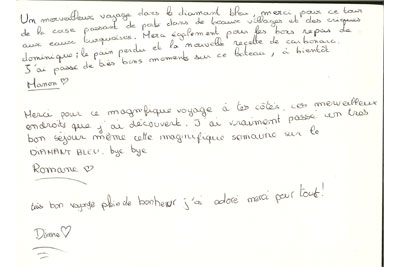 Un merveilleux voyage dans le diamant bleu, merci pour ce tour
de la corse passant de ports dans de beaux villages et des criques
aux eaux turquoises. Merci également pour les bons repas de
dominique; le pain perdu et la nouvelle recette de carbonara.
J'ai passé de très bons moments sur ce bateau, à bientôt
Manon ♡
Merci pour ce magnifique voyage à tes côtés, ces merveilleux
endroits que j'ai découvert. J'ai vraiment passé un très
bon séjour même cette magnifique semaine sur le
DIAMANT BLEU. bye bye
Romane ♡
très bon voyage plein de bonheur j'ai adoré merci pour tout!
Diane ♡